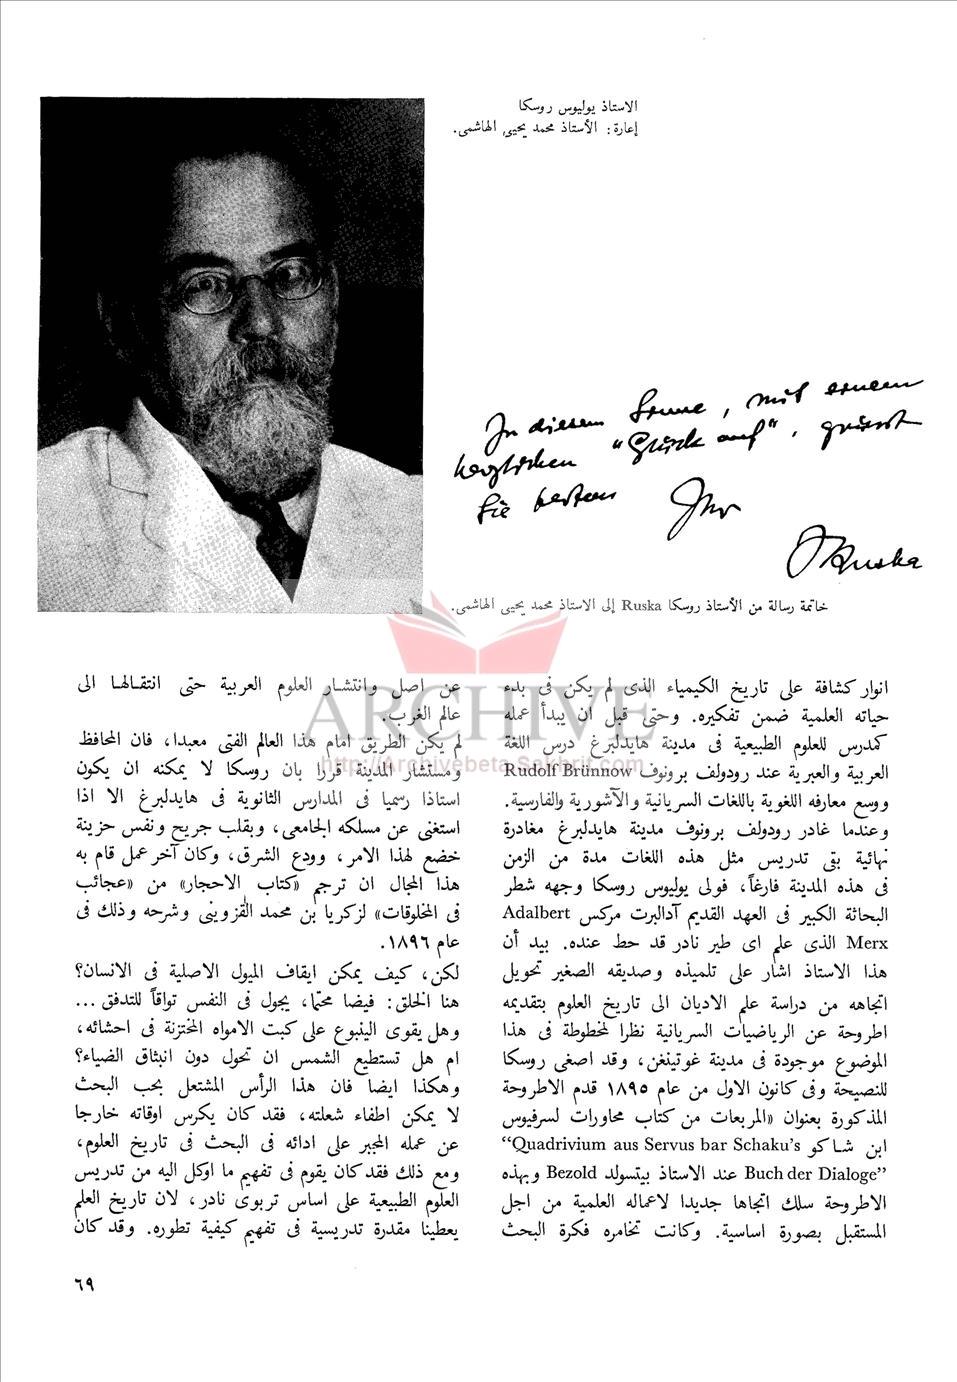 الاستاذ يوليوس روسكا
إعارة: الأستاذ محمد يحيى الهاشمى.
In diesem Sinne, mit einem
herzlichen "Glück auf", grüsst
Sie bestens Ihr
JRuska
خاتمة رسالة من الأستاذ روسكا Ruska إلى الاستاذ محمد يحيى الهاشمى.
انوار كشافة على تاريخ الكيمياء الذى لم يكن فى بدء
حياته العلمية ضمن تفكيره. وحتى قبل ان يبدأ عمله
كمدرس للعلوم الطبيعية فى مدينة هايدلبرغ درس اللغة
العربية والعبرية عند رودولف برونوف Rudolf Brünnow
ووسع معارفه اللغوية باللغات السريانية والآشورية والفارسية.
وعندما غادر رودولف برونوف مدينة هايدلبرغ مغادرة
نهائية بقى تدريس مثل هذه اللغات مدة من الزمن
فى هذه المدينة فارغاً، فولى يوليوس روسكا وجهه شطر
البحاثة الكبير فى العهد القديم آدالبرت مركس Adalbert
Merx الذى علم اى طير نادر قد حط عنده. بيد أن
هذا الاستاذ اشار على تلميذه وصديقه الصغير تحويل
اتجاهه من دراسة علم الاديان الى تاريخ العلوم بتقديمه
اطروحة عن الرياضيات السريانية نظرا لمخطوطة فى هذا
الموضوع موجودة فى مدينة غوتينغن، وقد اصغى روسكا
للنصيحة وفى كانون الاول من عام ١٨٩٥ قدم الاطروحة
المذكورة بعنوان «المربعات من كتاب محاورات لسرفيوس
ابن شاكو Quadrivium aus Servus bar Schaku's“
Buch der Dialoge” عند الاستاذ بيتسولد Bezold وبهذه
الاطروحة سلك اتجاها جديدا لاعماله العلمية من اجل
المستقبل بصورة اساسية. وكانت تخامره فكرة البحث
عن اصل وانتشار العلوم العربية حتى انتقالها الى
عالم الغرب.
لم يكن الطريق امام هذا العالم الفتى معبدا، فان المحافظ
ومستشار المدينة قررا بان روسكا لا يمكنه ان يكون
استاذا رسميا فى المدارس الثانوية فى هايدلبرغ الا اذا
استغنى عن مسلكه الجامعى، وبقلب جريح ونفس حزينة
خضع لهذا الامر، وودع الشرق، وكان آخر عمل قام به
هذا المجال ان ترجم «كتاب الاحجار» من «عجائب
فى المخلوقات» لزكريا بن محمد القزوينى وشرحه وذلك فى
عام ١٨٩٦.
لكن، كيف يمكن ايقاف الميول الاصلية فى الانسان؟
هنا الخلق: فيضا محتما، يجول فى النفس تواقاً للتدفق ...
وهل يقوى الينبوع على كبت الامواه المختزنة فى احشائه،
ام هل تستطيع الشمس ان تحول دون انبثاق الضياء؟
وهكذا ايضا فان هذا الرأس المشتعل بحب البحث
لا يمكن اطفاء شعلته، فقد كان يكرس اوقاته خارجا
عن عمله المجبر على ادائه فى البحث فى تاريخ العلوم،
ومع ذلك فقد كان يقوم فى تفهيم ما اوكل اليه من تدريس
العلوم الطبيعية على اساس تربوى نادر، لان تاريخ العلم
يعطينا مقدرة تدريسية فى تفهيم كيفية تطوره. وقد كان
٦٩
ARCHIVE
http://Archivebeta.Sakhrit.com